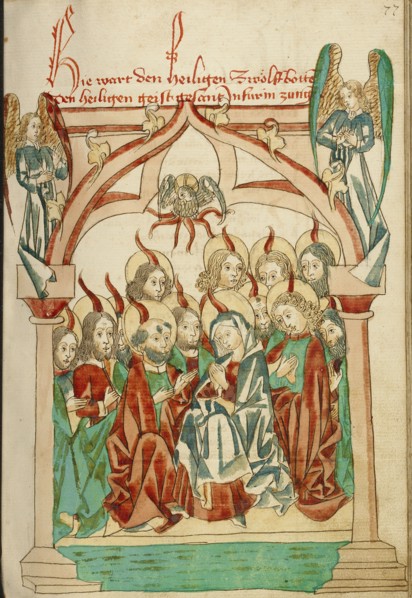 77
Hie wart den heiligen Zwölffbotten
den heiligen geist gesant In fürin zungen